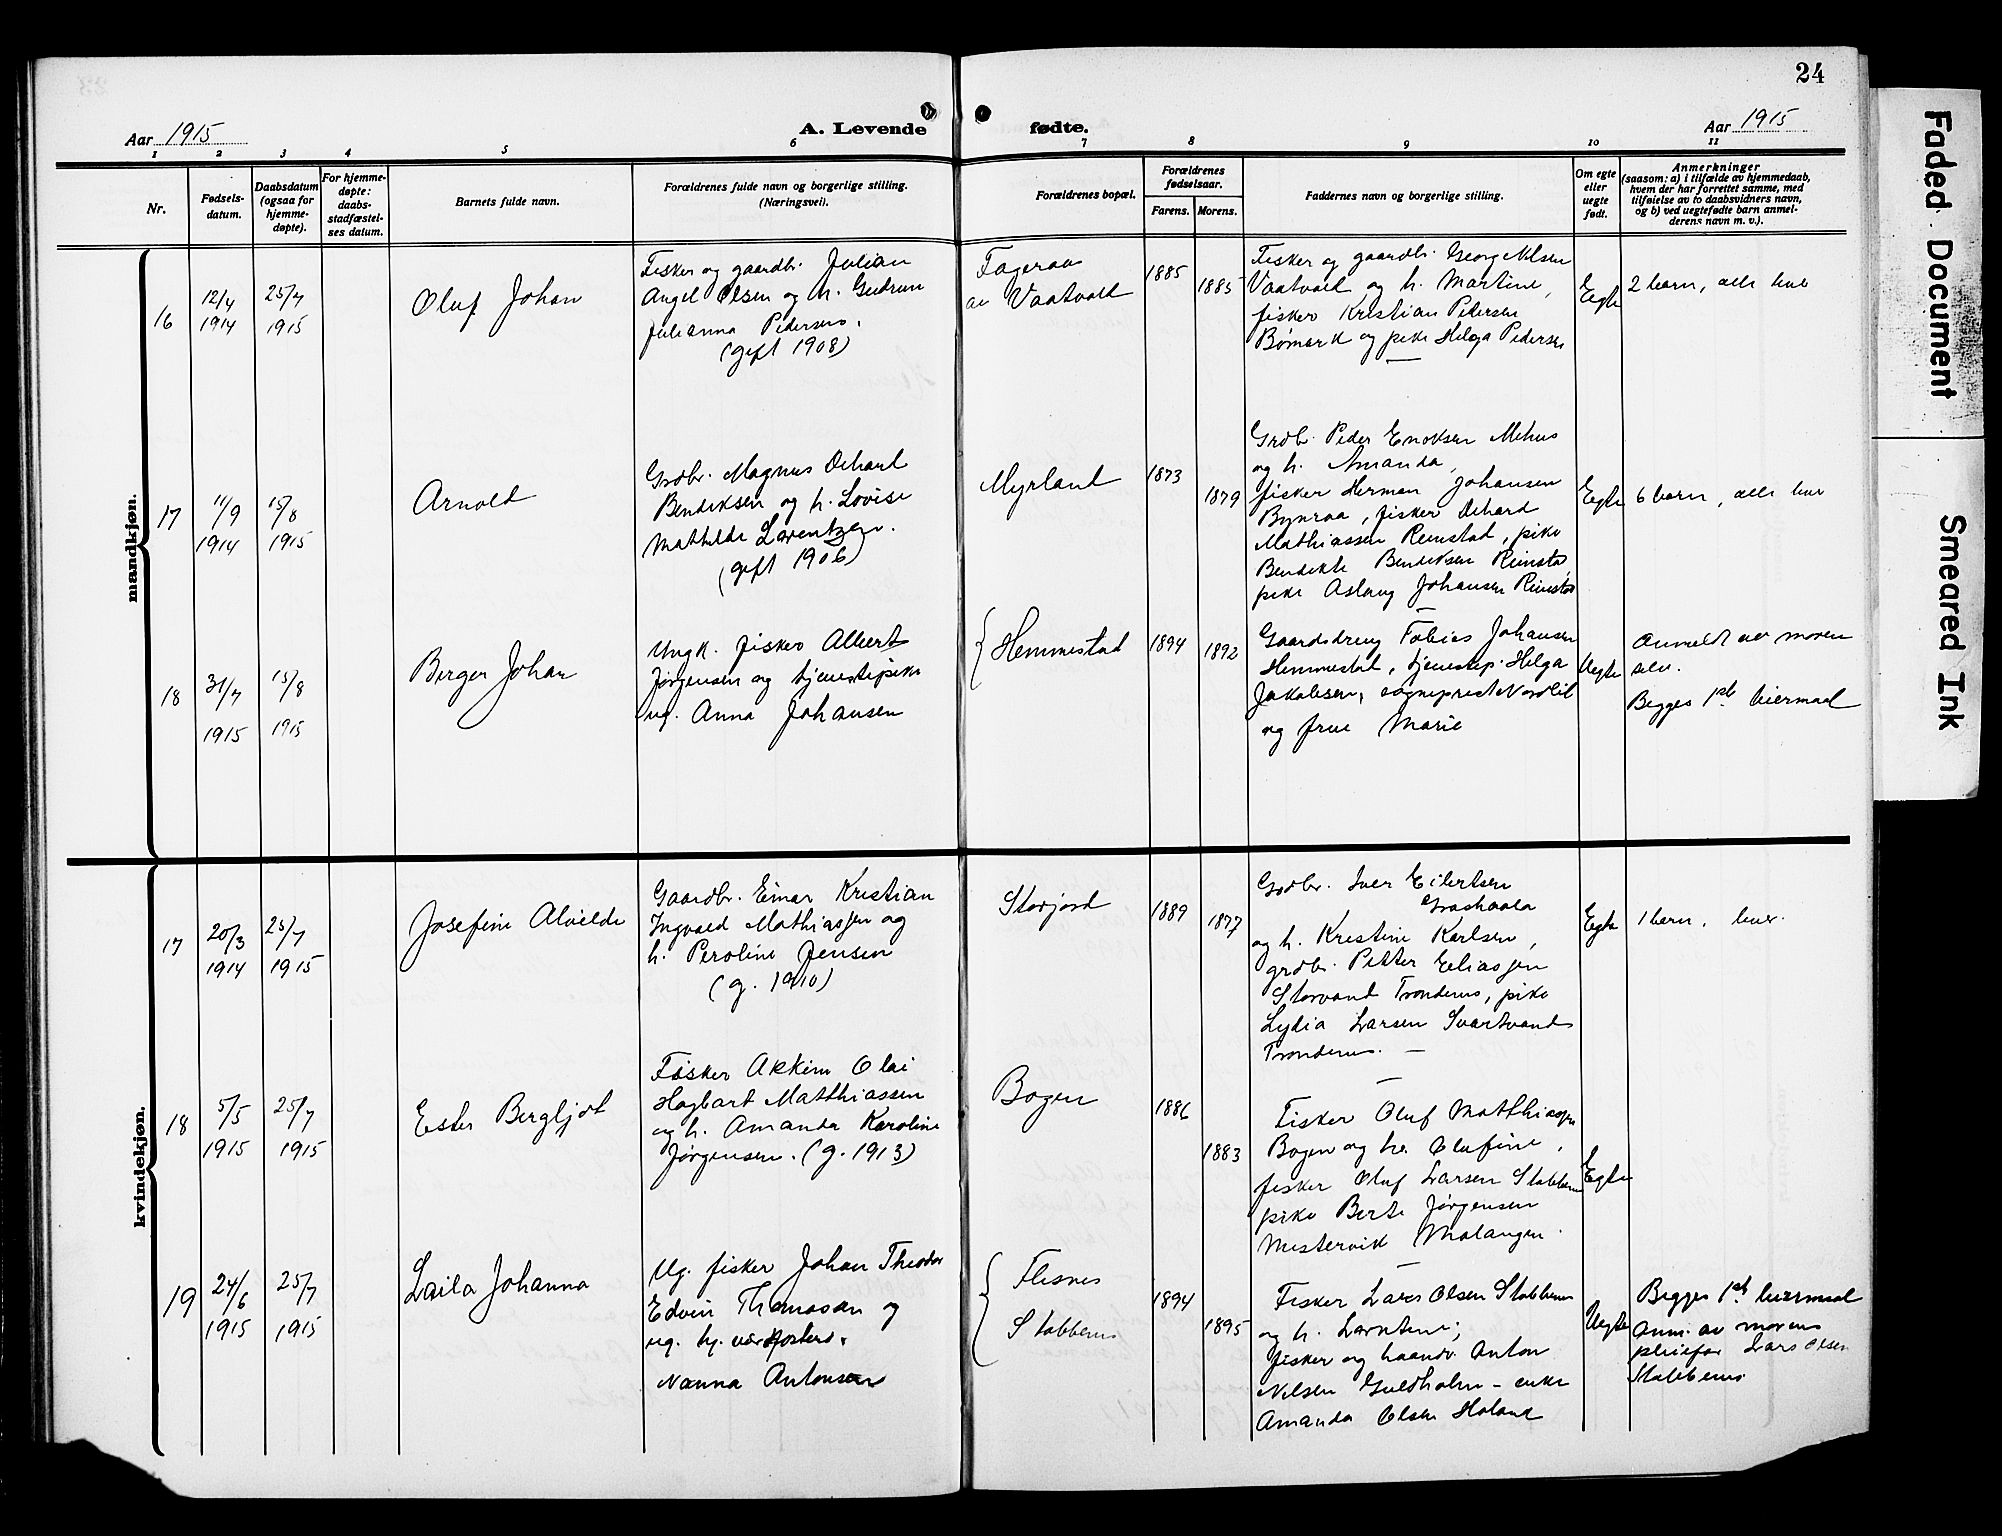 24
Aar 1915
A. Levende
fødte.
Aar 1915
1 2 3 4 5 6 7 8 9 10 11
Nr.
Fødsels-
datum.
Daabsdatum
(ogsaa for
hjemme-
døpte).
For hjemme-
døpte:
daabs-
stadfæstel-
ses datum.
Barnets fulde navn.
Forældrenes fulde navn og borgerlige stilling.
(Næringsvei).
Forældrenes bopæl.
Forældrenes
fødselsaar.
Farens. Morens.
Faddernes navn og borgerlige stilling.
Om egte
eller
uegte
født.
Anmerkninger
(saasom: a) i tilfælde av hjemmedaab,
hvem der har forrettet samme, med
tilføielse av to daabsvidners navn,
og b) ved uegtefødte barn anmel-
derens navn m. v.).
mandkjøn.
16
12/4
1914
25/7
1915
Oluf Johan
Fisker og gaardbr. Julian
Angel Olsen og h. Gudrun
Julianna Pedersen.
(gift 1908)
Fageraa
av Vaatvold
1885
1885
Fisker og gaardbr. Georg Olsen
Vaatvold og h. Martine,
fisker Kristian Pedersen
Bømark og pike Helga Pedersen
Egte
2 barn, alle lever
17
11/9
1914
15/8
1915
Arnold
Grdbr. Magnus Dehart
Bendiksen og h. Lovise
Mathilde Lorentzen.
(gift 1906)
Myrland
1873
1879
Grdbr. Peder Enoksen Mehus
og h. Amanda,
fisker Herman Johansen
Bynraa, fisker Dehard
Mathiassen Reinstad, pike
Bendikte Bendiksen Reinsta,
pike Aslaug Johansen Reinstad
Egte
6 barn, alle lever
18
31/7
1915
15/8
1915
Birger Johan
Ungk. fisker Albert
Jørgensen og tjenestepike
ug. Anna Johansen
Hemmestad
1894
1892
Gaardsdreng Tobias Johansen
Hemmestad, tjenestep. Helga
Jakobsen, sogneprest Nordlid
og frue Marie
Uegte
Anmeldt av moren
selv.
Begges 1ste leiermaal
kvindekjøn.
17
20/3
1914
25/7
1915
Josefine Alvilde
Gaardbr. Einar Kristian
Ingvald Mathiassen og
h. Peroline Jensen
(g. 1910)
Storjord
1889
1877
Grdbr. Iver Eilertsen
og h. Kristine Karlsen,
grdbr. Petter Eliassen
Storvand Trondenes, pike
Lydia Larsen Svartvand
Trondenes. —
Egte
1 barn, lever.
18
5/5
1915
25/7
1915
Ester Bergljot
Fisker Akkim Olai
Hagbart Matthiassen
og h. Amanda Karoline
Jørgensen. (g. 1913)
Bogen
1886
1883
Fisker Oluf Matthiassen
Bogen og h. Olufine,
fisker Oluf Larsen Stobbenes
pike Berte Jørgensen
Mestervik Malangen.
Egte
19
24/6
1915
25/7
1915
Laila Johanna
Ug. fisker Johan Theodor
Edvin Thomassen og
ug. tj.
Nanna Antonsen
Flesnes
Stobbenes
1894
1895
Fisker Lars Olsen Stobbenes
og h. Larntine;
fisker og haandv. Anton
Nilsen Guldholm - enke
Amanda Olsen Holand
Uegte
Begges 1ste leiermaal
Anm. av morens
pleiefar Lars Olsen
Stobbenes
Faded Document
Smeared Ink